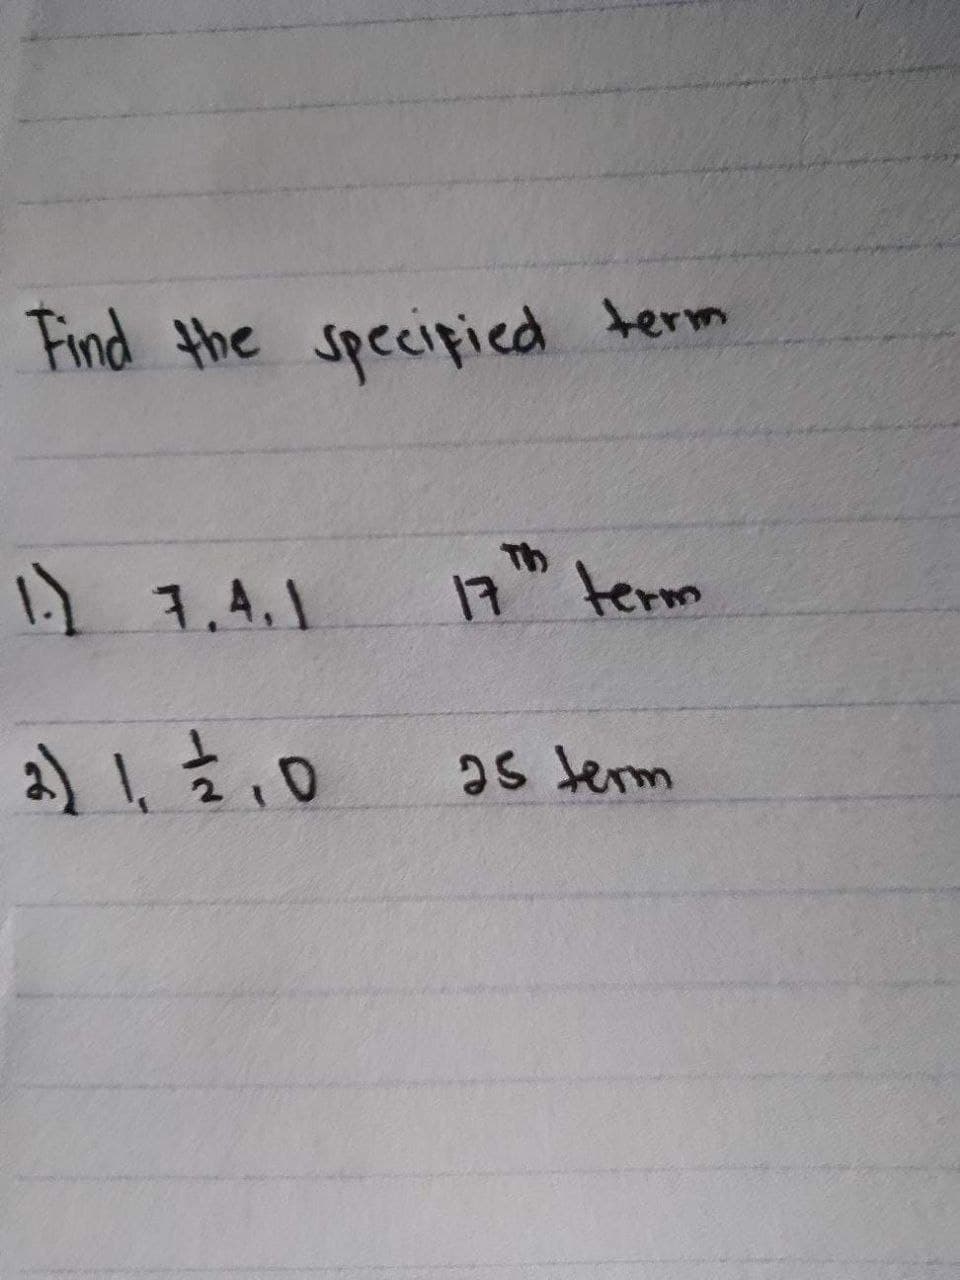 Find the specified term
1.) 7, 4, 1 17Th term
2) 1, 1/2, 0 25 term